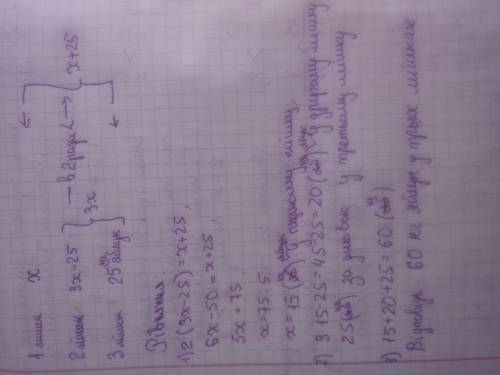 1 мішок x
2 мішок 3x-25 } — в 2 рази < → { x+25
3x
3 мішок 25 кг яблук
Рівняння
1) 2(3x-25) = x+25,
6x-50 = x+25,
5x = 75,
x = 75:5
x = 15 (кг яблук) у першому мішку,
2) 3·15-25 = 45-25 = 20 (кг яблук) у другому мішку
25 (кг) за умовою у третьому мішку
3) 15+20+25 = 60 (кг)
Відповідь: 60 кг яблук у трьох мішках